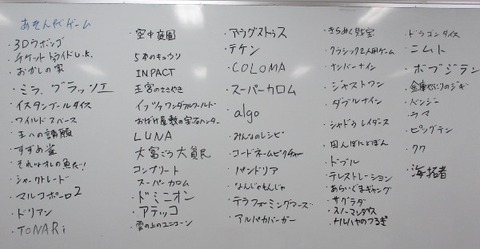 あそんだゲーム
・3Dウボンゴ
・チケットトゥライドU.K.
・おかしの家
・ミラ、ブラッソ
・イスタンブールダイス
・ワイルドスペース
・王への請願
・すずめ雀
・それはオレの魚だ!
・ジャンクトレード
・マルコポーロ2
・ドリアン
・TONARi
・空中庭園
・5本のキュウリ
・INPACT
・王宮のささやき
・イッツアワンダフルワールド
・おばけ屋敷の宝石ハンター
・LUNA
・大富ごう大貧民
・コンプリート
・スーパーカロム
・ドミニオン
・アテッコ
・雲の上のユニコーン
・アウグストゥス
・テケン
・COLOMA
・スーパーカロム
・algo
・みんなのレシピ
・コードネームピクチャー
・パンドリア
・なんじゃもんじゃ
・テラフォーミングマーズ
・アルパカパーガー
・きらめく財宝
・クラシック2人用ゲーム
・ナンバーナイン
・ジャストワン
・ダブルナイン
・シャドウレイダース
・ドブル
・テレストレーション
・あらしぐまギャング
・サグラダ
・ドラゴンダイス
・ニムト
・ボブジテン
・バンジー
・ラマ
・ピングテン
・クク
・海賊者